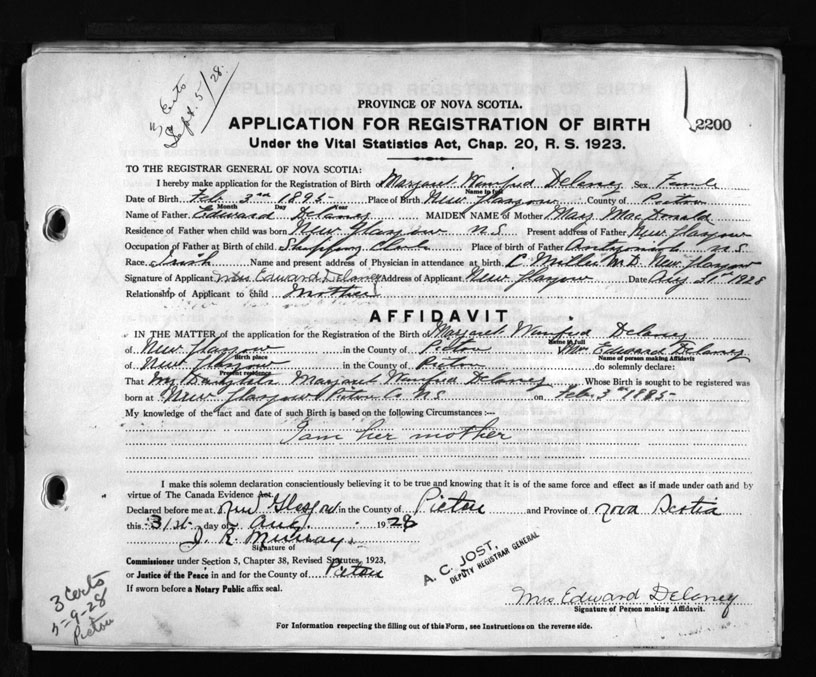 3 Certs
Sept. 5/28.
PROVINCE OF NOVA SCOTIA.
APPLICATION FOR REGISTRATION OF BIRTH
2200
Under the Vital Statistics Act, Chap. 20, R. S. 1923.
TO THE REGISTRAR GENERAL OF NOVA SCOTIA:
I hereby make application for the Registration of Birth of Margaret Winifred Delaney Sex Female
Name in full
Date of Birth Feb. 3rd 1895 Place of Birth New Glasgow County of Pictou
Month Day Year
Name of Father Edward Delaney MAIDEN NAME of Mother Mary MacDonald
Residence of Father when child was born New Glasgow N.S. Present address of Father New Glasgow
Occupation of Father at Birth of child. Shipping Clerk Place of birth of Father Antigonish N.S.
Race Irish Name and present address of Physician in attendance at birth. C Miller M.D. New Glasgow
Signature of Applicant Mrs Edward Delaney Address of Applicant New Glasgow Date Aug 31st 1928
Relationship of Applicant to child Mother
AFFIDAVIT
IN THE MATTER of the application for the Registration of the Birth of Margaret Winifred Delaney
Name in full
of New Glasgow in the County of Pictou Mrs Edward Delaney
Birth place Name of person making Affidavit
of New Glasgow in the County of Pictou do solemnly declare:
Present residence
That my Daughter Margaret Winifred Delaney Whose Birth is sought to be registered was
born at New Glasgow Pictou Co N.S. on Feb. 3rd 1885
My knowledge of the fact and date of such Birth is based on the following Circumstances :—
I am her mother
I make this solemn declaration conscientiously believing it to be true and knowing that it is of the same force and effect as if made under oath and by
virtue of The Canada Evidence Act.
Declared before me at New Glasgow in the County of Pictou and Province of Nova Scotia
this 31st day of Aug. 1928
J. R. Murray
Signature of
A. C. JOST,
DEPUTY REGISTRAR GENERAL
Commissioner under Section 5, Chapter 38, Revised Statutes, 1923,
or Justice of the Peace in and for the County of Pictou
If sworn before a Notary Public affix seal.
Mrs Edward Delaney
Signature of Person making Affidavit.
3 Certs
5-9-28
Pictou
For Information respecting the filling out of this Form, see Instructions on the reverse side.